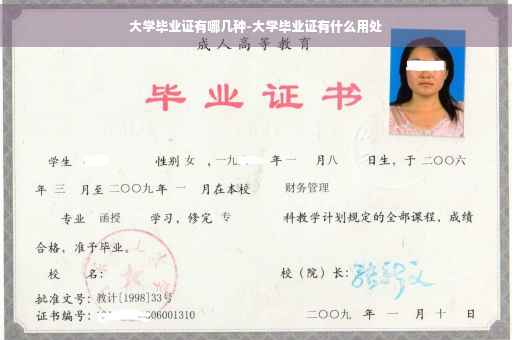 大学毕业证有哪几种-大学毕业证有什么用处
成人高等教育
毕业证书
学生 性别 女 ，一九 年 一 月 八 日生，于 二〇〇六
年 三 月至 二〇〇九 年 一 月在本校 财务管理
专业 函授 学习，修完 专 科教学计划规定的全部课程，成绩
合格，准予毕业。
校 名： 校（院）长：
批准文号：教计[1998]33号
证书编号： 06001310 二〇〇九 年 一 月 十 日